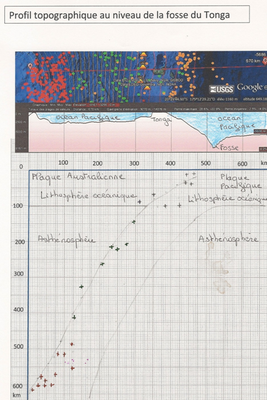 Profil topographique au niveau de la fosse du Tonga
USGS Google
océan Pacifique Tonga océan
Pacifique
Fosse
0 100 200 300 400 500 600 km
Plaque Australienne Plaque
Pacifique
Lithosphère océanique Lithosphère océanique
100
Asthénosphère Asthénosphère
200
300
400
500
600
km